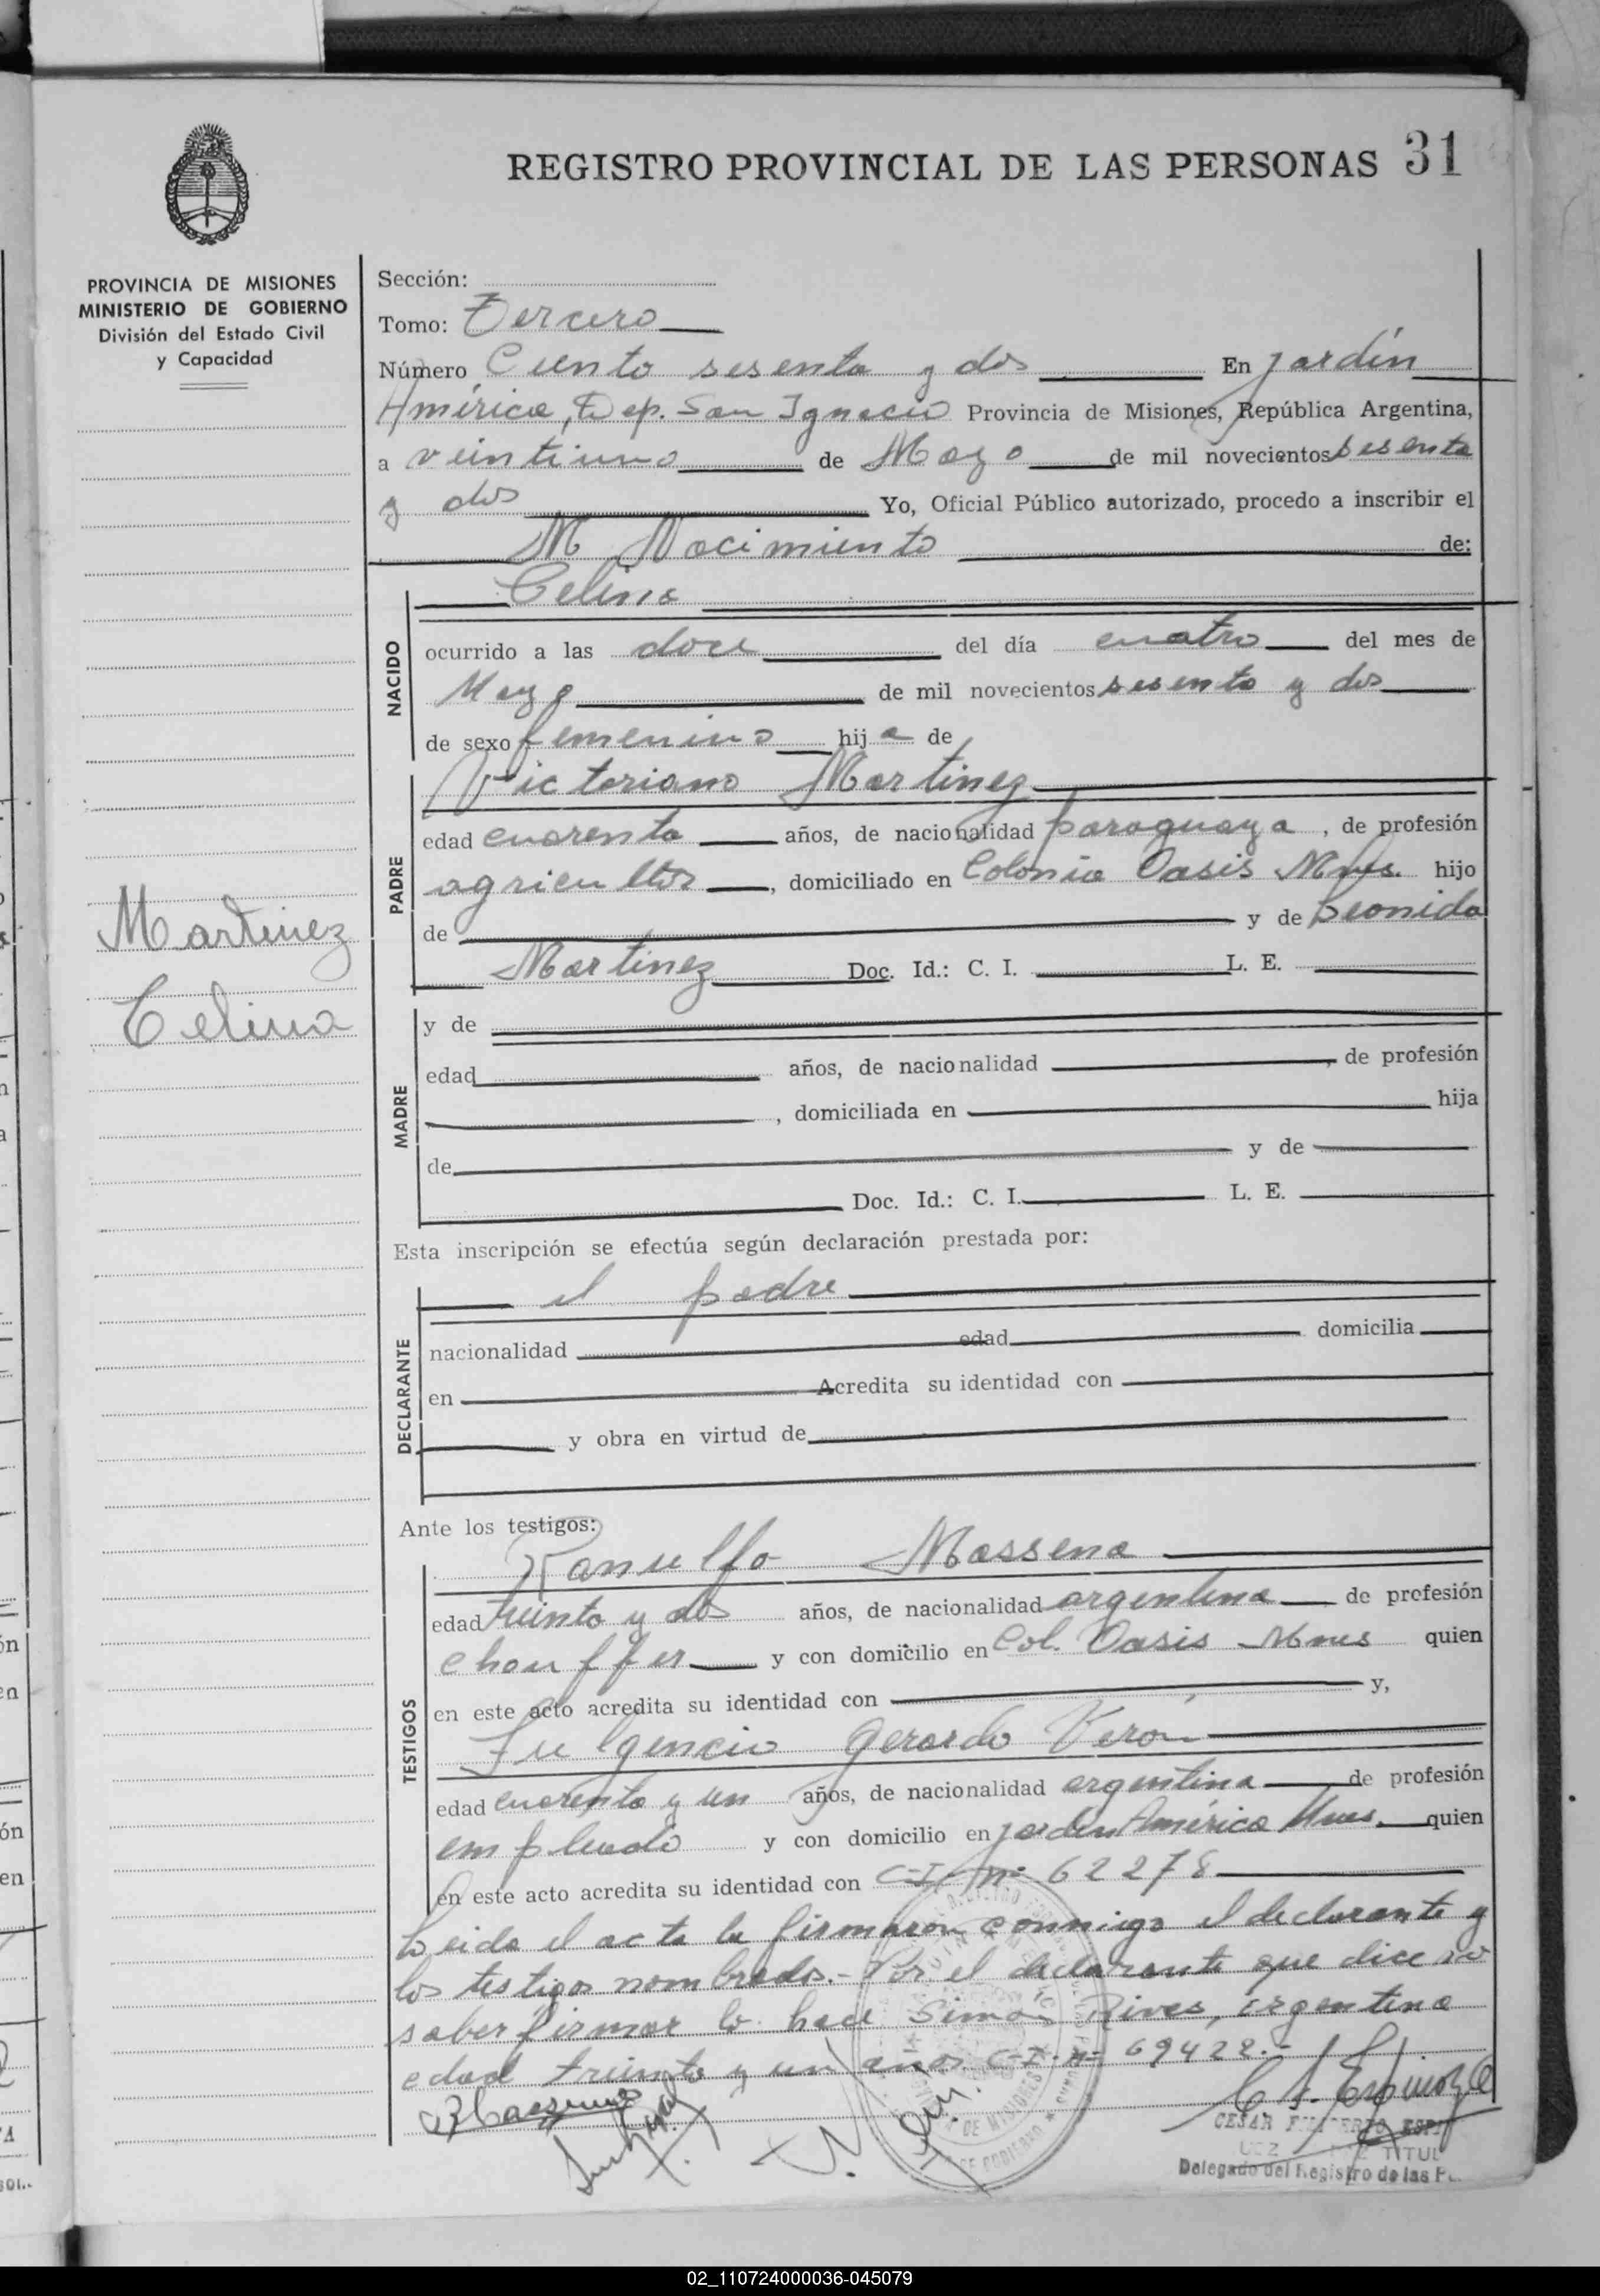 REGISTRO PROVINCIAL DE LAS PERSONAS 31
PROVINCIA DE MISIONES
MINISTERIO DE GOBIERNO
División del Estado Civil
y Capacidad
Sección:
Tomo: Tercero
Número Ciento sesenta y dos En Jardín
América, Dep. San Ignacio Provincia de Misiones, República Argentina,
a veintiuno de Mayo de mil novecientos sesenta
y dos Yo, Oficial Público autorizado, procedo a inscribir el
Nacimiento de:
Celina
NACIDO
ocurrido a las doce del día cuatro del mes de
Mayo de mil novecientos sesenta y dos
de sexo femenino hija de
Victoriano Martinez
PADRE
edad cuarenta años, de nacionalidad paraguaya, de profesión
agricultor, domiciliado en Colonia Oasis Mnes. hijo
de y de Leonida
Martinez Doc. Id.: C. I. L. E.
Martinez
Celina
MADRE
y de
edad años, de nacionalidad , de profesión
, domiciliada en hija
de y de
Doc. Id.: C. I. L. E.
Esta inscripción se efectúa según declaración prestada por:
DECLARANTE
el padre
nacionalidad edad domicilia
en Acredita su identidad con
y obra en virtud de
Ante los testigos:
TESTIGOS
Ranulfo Massena
edad treinta y dos años, de nacionalidad argentina de profesión
chouffer y con domicilio en Col. Oasis Mnes quien
en este acto acredita su identidad con y,
Fulgencio Gerardo Verón
edad cuarenta y un años, de nacionalidad argentina de profesión
empleado y con domicilio en Jardín América Mnes. quien
en este acto acredita su identidad con C-I-Nº 62278
Leida el acta la firmaron conmigo el declarante y
los testigos nombrados.- Por el declarante que dice no
saber firmar lo hace Simón Rivas, argentino
edad treinta y un años C-I-Nº 69422.-
CESAR
TITUL
Delegado del Registro de las P
02_110724000036-045079